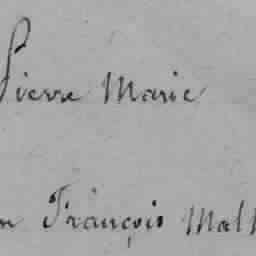 Pierre Marie
n François Mal